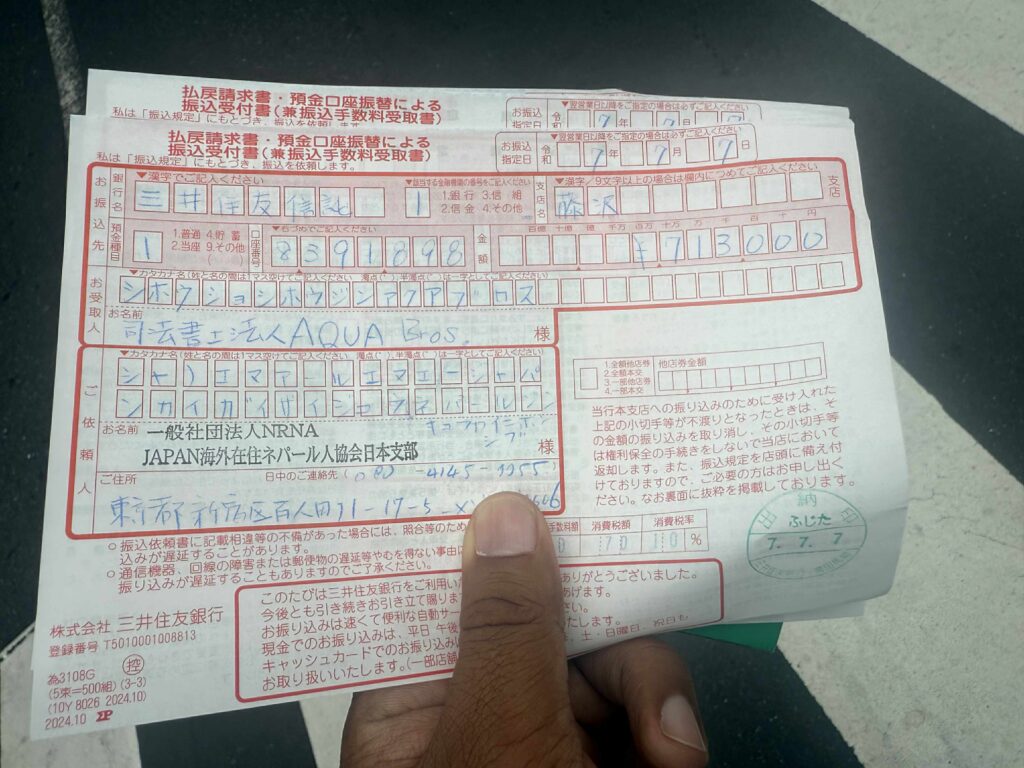 払戻請求書・預金口座振替による
振込受付書(兼振込手数料受取書)
私は「振込規定」にもとづき、振込を依頼します。
お振込指定日 令和 7年 7月 7
▼翌営業日以降をご指定の場合は必ずご記入ください
払戻請求書・預金口座振替による
振込受付書(兼振込手数料受取書)
私は「振込規定」にもとづき、振込を依頼します。
▼翌営業日以降をご指定の場合は必ずご記入ください
お振込指定日 令和 7年 7月 7日
お振込先
銀行名 ▼漢字でご記入ください 三井住友信託
▼該当する金融機関の番号をご記入ください 1 1.銀行 3.信組 2.信金 4.その他
支店名 ▼漢字/9文字以上の場合は欄内につめてご記入ください 藤沢 支店
預金種目 1 1.普通 4.貯蓄 2.当座 9.その他
口座番号 ▼右づめでご記入ください 8391898
金額 百億 十億 億 千万 百万 十万 万 千 百 十 円
¥713000
お受取人
▼カタカナ名(姓と名の間は1マス空けてご記入ください 濁点(゛)、半濁点(゜)は一字としてご記入ください)
シホウショシホウジンアクアブロス
お名前
司法書士法人AQUA Bros. 様
ご依頼人
▼カタカナ名(姓と名の間は1マス空けてご記入ください 濁点(゛)、半濁点(゜)は一字としてご記入ください)
シャ)エヌアールエヌエージャパ
ンカイガイザイジュウネパールジン
キョウカイニホンシブ
お名前 一般社団法人NRNA
JAPAN海外在住ネパール人協会日本支部 様
ご住所 日中のご連絡先
-4145-
新宿区百人町1-17-5
1.全額他店券
2.全額本交
3.一部他店券
4.一部本交
他店券金額
当行本支店への振り込みのために受け入れた
上記の小切手等が不渡りとなったときは、そ
の金額の振り込みを取り消し、その小切手等
は権利保全の手続きをしないで当店において
返却します。また、振込規定を店頭に備え付
けておりますので、ご必要の方はお申し出く
ださい。なお裏面に抜粋を掲載しております。
手数料額 消費税額 消費税率
0 70 10%
出納印
ふじた
7. 7. 7
○振込依頼書に記載相違等の不備があった場合には、照合等のため
込みが遅延することがあります。
○通信機器、回線の障害または郵便物の遅延等やむを得ない事由
振り込みが遅延することもありますのでご了承ください。
このたびは三井住友銀行をご利用い ありがとうございました。
今後とも引き続きお引き立て賜りま あげます。
お振り込みは速くて便利な自動サー
現金でのお振り込みは、平日 午後 土・日曜日、祝日も
キャッシュカードでのお振り込み
お取り扱いいたします。(一部店舗
株式会社 三井住友銀行
登録番号 T5010001008813
為3108G 控
(5束=500組) (3-3)
(10Y 8026 2024.10)
2024.10